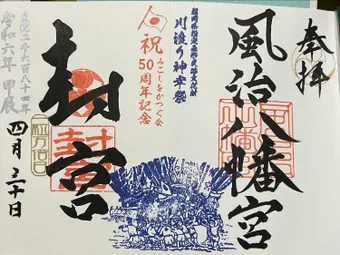 奉拝
風治八幡宮
福岡県指定無形民俗文化財
川渡り神幸祭
祝
みこしをかつぐ会
50周年記念
封宮
皇紀二千六百八十四年
令和六年 甲辰
四月三十日
一粒万倍日